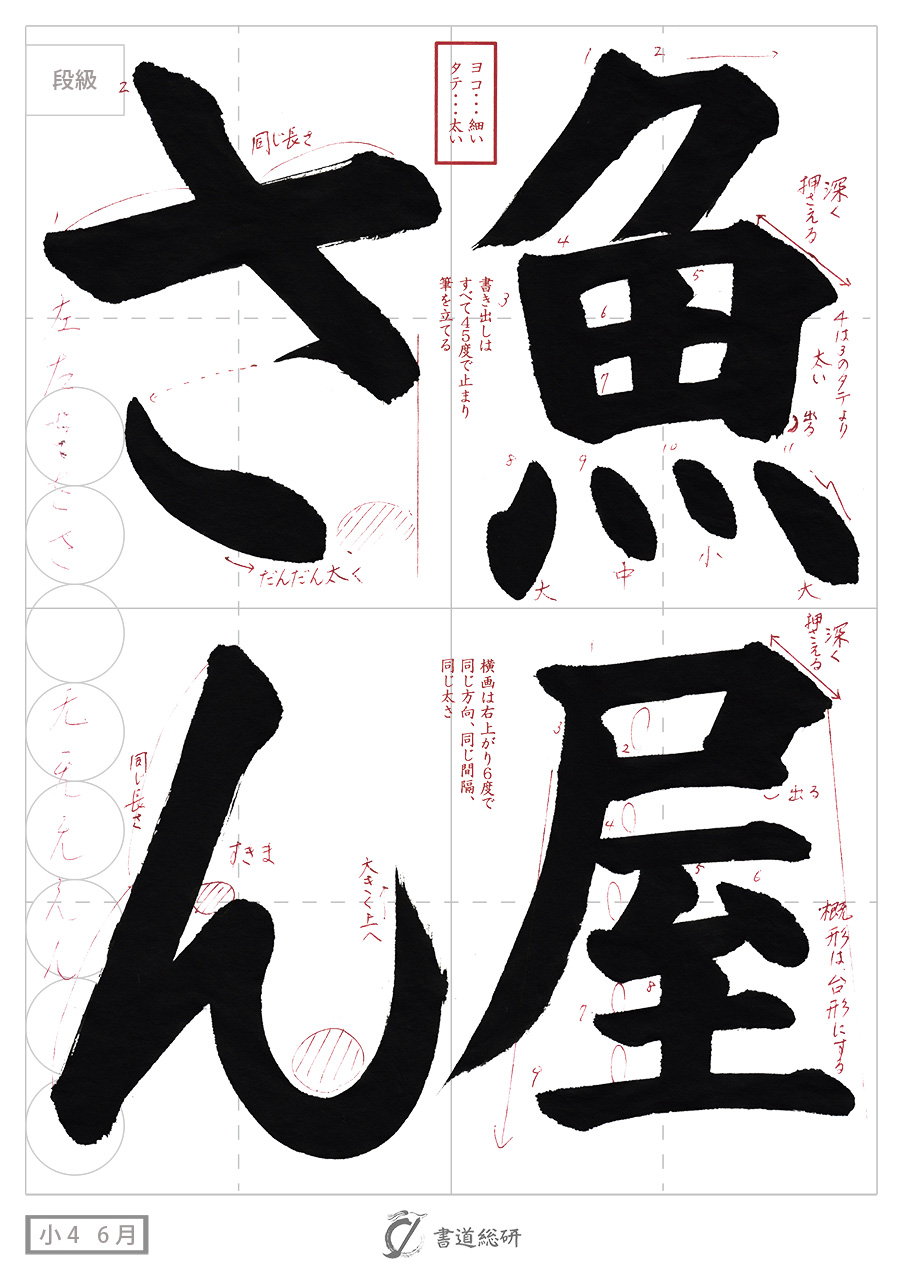 魚屋
さん
ヨコ・・・細い
タテ・・・太い
1
2
3
4
5
6
7
8
9
10
11
深く
押さえる
4は3のタテより
太い
出る
大
中
小
大
書き出しは
すべて45度で止まり
筆を立てる
深く
押さえる
1
2
3
4
5
6
7
8
9
出る
概形は台形にする
横画は右上がり6度で
同じ方向、同じ間隔、
同じ太さ
段級
1
2
同じ長さ
だんだん太く
左
さ
同じ長さ
すきま
大きく上へ
无
ん
小4 6月
書道総研